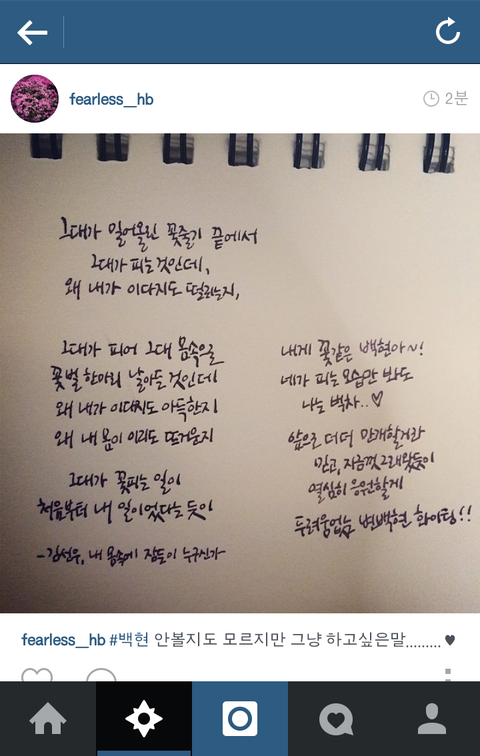 fearless__hb
2분
그대가 밀어올린 꽃줄기 끝에서
그대가 피는 것인데,
왜 내가 이다지도 떨리는지,
그대가 피어 그대 몸속으로
꽃벌 한마리 날아든 것인데
왜 내가 이다지도 아득한지
왜 내 몸이 이리도 뜨거운지
그대가 꽃피는 일이
처음부터 내 일이었다는 듯이
-김선우, 내 몸속에 잠든이 누구신가
내게 꽃같은 백현아~!
네가 피는 모습만 봐도
나는 벅차..♡
앞으로 더더 만개할거라
믿고, 지금껏 그래왔듯이
열심히 응원할게
두려움없는 변백현 화이팅!!
fearless__hb #백현 안볼지도 모르지만 그냥 하고싶은말.........♥